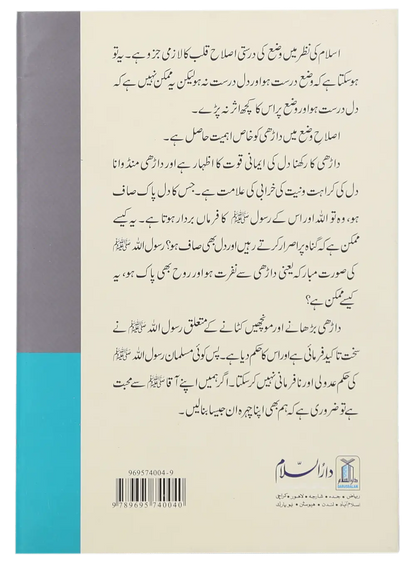 اسلام کی نظر میں وضع کی درستی اصلاح قلب کا لازمی جزو ہے۔ یہ تو
ہوسکتا ہے کہ وضع درست ہو اور دل درست نہ ہو لیکن یہ ممکن نہیں ہے کہ
دل درست ہو اور وضع پر اس کا کچھ اثر نہ پڑے۔
اصلاح وضع میں داڑھی کو خاص اہمیت حاصل ہے۔
داڑھی کا رکھنا دل کی ایمانی قوت کا اظہار ہے اور داڑھی منڈوانا
دل کی کراہت و نیت کی خرابی کی علامت ہے۔ جس کا دل پاک صاف
ہو، وہ تو اللہ اور اس کے رسول ﷺ کا فرماں بردار ہوتا ہے۔ یہ کیسے
ممکن ہے کہ گناہ پر اصرار کرتے رہیں اور دل بھی صاف ہو؟ رسول اللہ ﷺ
کی صورت مبارکہ یعنی داڑھی سے نفرت ہو اور روح بھی پاک ہو، یہ
کیسے ممکن ہے؟
داڑھی بڑھانے اور مونچھیں کٹانے کے متعلق رسول اللہ ﷺ نے
سخت تاکید فرمائی ہے اور اس کا حکم دیا ہے۔ پس کوئی مسلمان رسول اللہ ﷺ
کی حکم عدولی اور نافرمانی نہیں کرسکتا۔ اگر ہمیں اپنے آقا ﷺ سے محبت
ہے تو ضروری ہے کہ ہم بھی اپنا چہرہ ان جیسا بنالیں۔
969574004-9
9 789695 740040
دارالسلام
DARUSSALAM
ریاض • جدہ • شارجہ • لاہور • کراچی
اسلام آباد • لندن • ہیوسٹن • نیو یارک